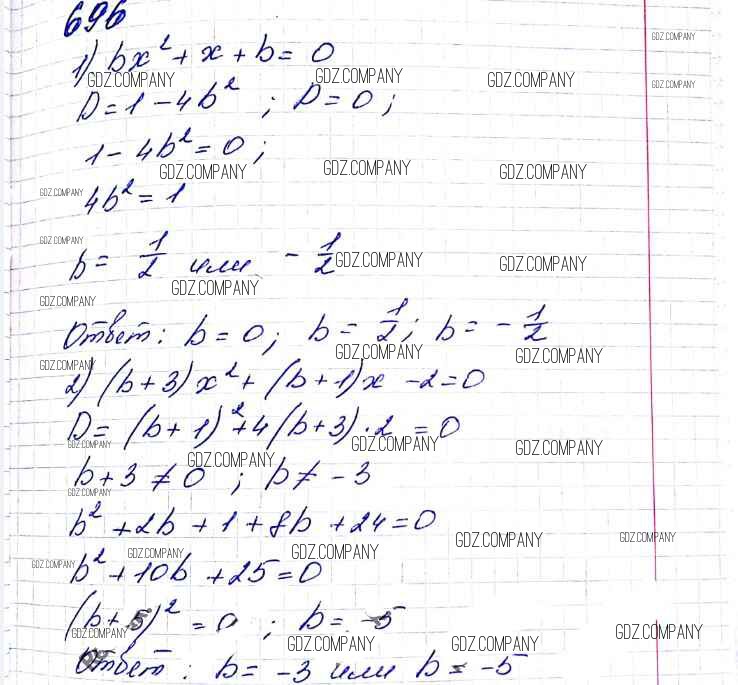 696
1) bx² + x + b = 0
GDZ.COMPANY
GDZ.COMPANY GDZ.COMPANY GDZ.COMPANY GDZ.COMPANY
D = 1 - 4b² ; D = 0 ;
1 - 4b² = 0 ;
GDZ.COMPANY GDZ.COMPANY GDZ.COMPANY
GDZ.COMPANY
4b² = 1
GDZ.COMPANY
b = 1/2 или - 1/2
GDZ.COMPANY GDZ.COMPANY
GDZ.COMPANY
GDZ.COMPANY
Ответ: b = 0; b = 1/2; b = - 1/2
GDZ.COMPANY GDZ.COMPANY GDZ.COMPANY
2) (b + 3)x² + (b + 1)x - 2 = 0
D = (b + 1)² + 4(b + 3)·2 = 0
GDZ.COMPANY GDZ.COMPANY GDZ.COMPANY
GDZ.COMPANY
b + 3 ≠ 0 ; b ≠ - 3
GDZ.COMPANY
b² + 2b + 1 + 8b + 24 = 0
GDZ.COMPANY GDZ.COMPANY
GDZ.COMPANY GDZ.COMPANY GDZ.COMPANY
b² + 10b + 25 = 0
(b + 5)² = 0 ; b = -5
GDZ.COMPANY GDZ.COMPANY GDZ.COMPANY GDZ.COMPANY
Ответ: b = -3 или b = -5